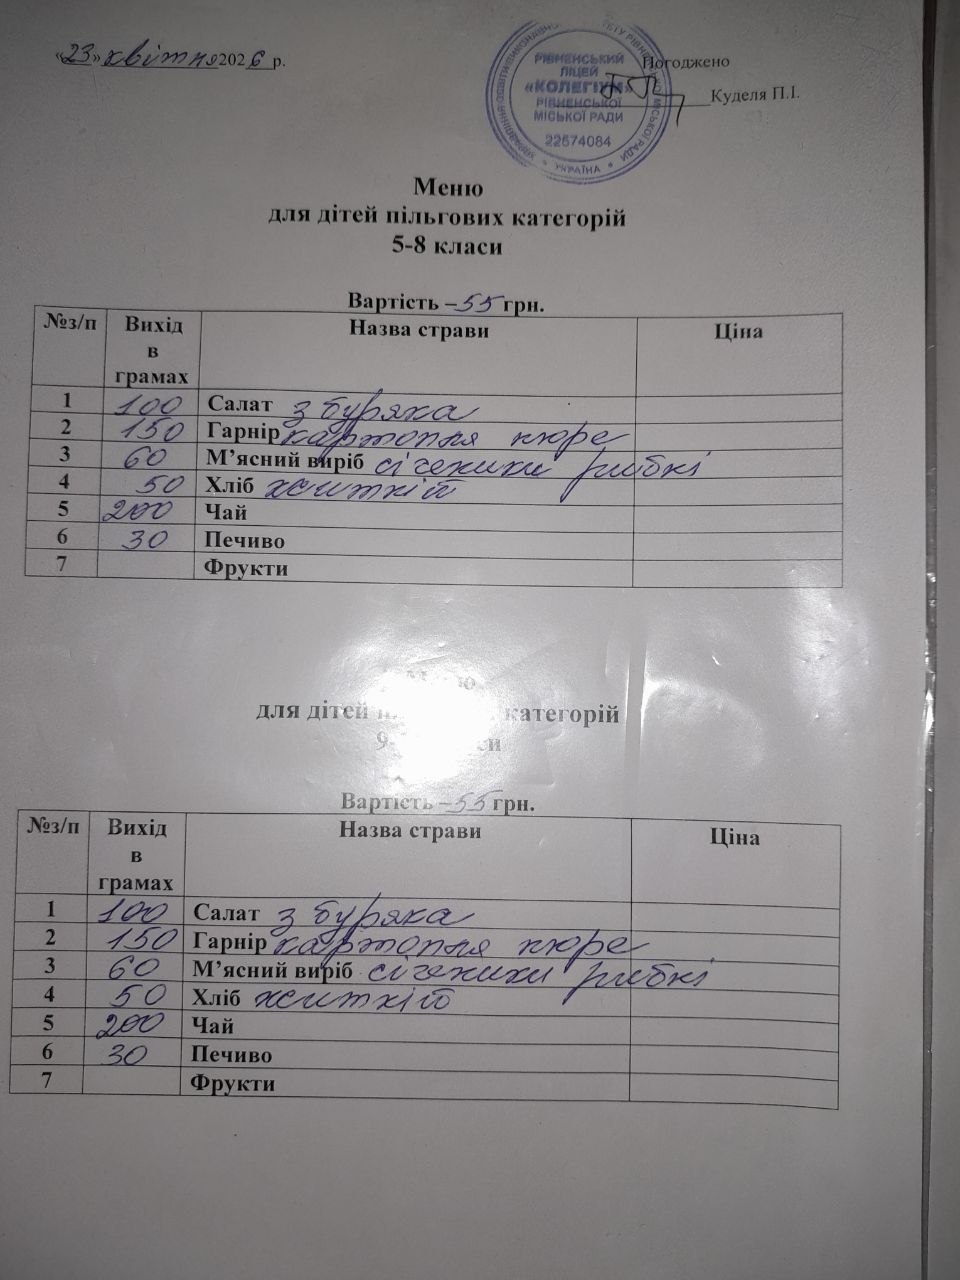 «23» квітня 2026 р.
РІВНЕНСЬКИЙ
ЛІЦЕЙ
«КОЛЕГІУМ»
РІВНЕНСЬКОЇ
МІСЬКОЇ РАДИ
22574084
УКРАЇНА
Погоджено
Куделя П.І.
Меню
для дітей пільгових категорій
5-8 класи
Вартість – 55 грн.
№з/п Вихід в грамах Назва страви Ціна
1 100 Салат з буряка
2 150 Гарнір картопля пюре
3 60 М’ясний виріб січеники рибні
4 50 Хліб житній
5 200 Чай
6 30 Печиво
7 Фрукти
для дітей категорій
Вартість – 55 грн.
№з/п Вихід в грамах Назва страви Ціна
1 100 Салат з буряка
2 150 Гарнір картопля пюре
3 60 М’ясний виріб січеники рибні
4 50 Хліб житній
5 200 Чай
6 30 Печиво
7 Фрукти